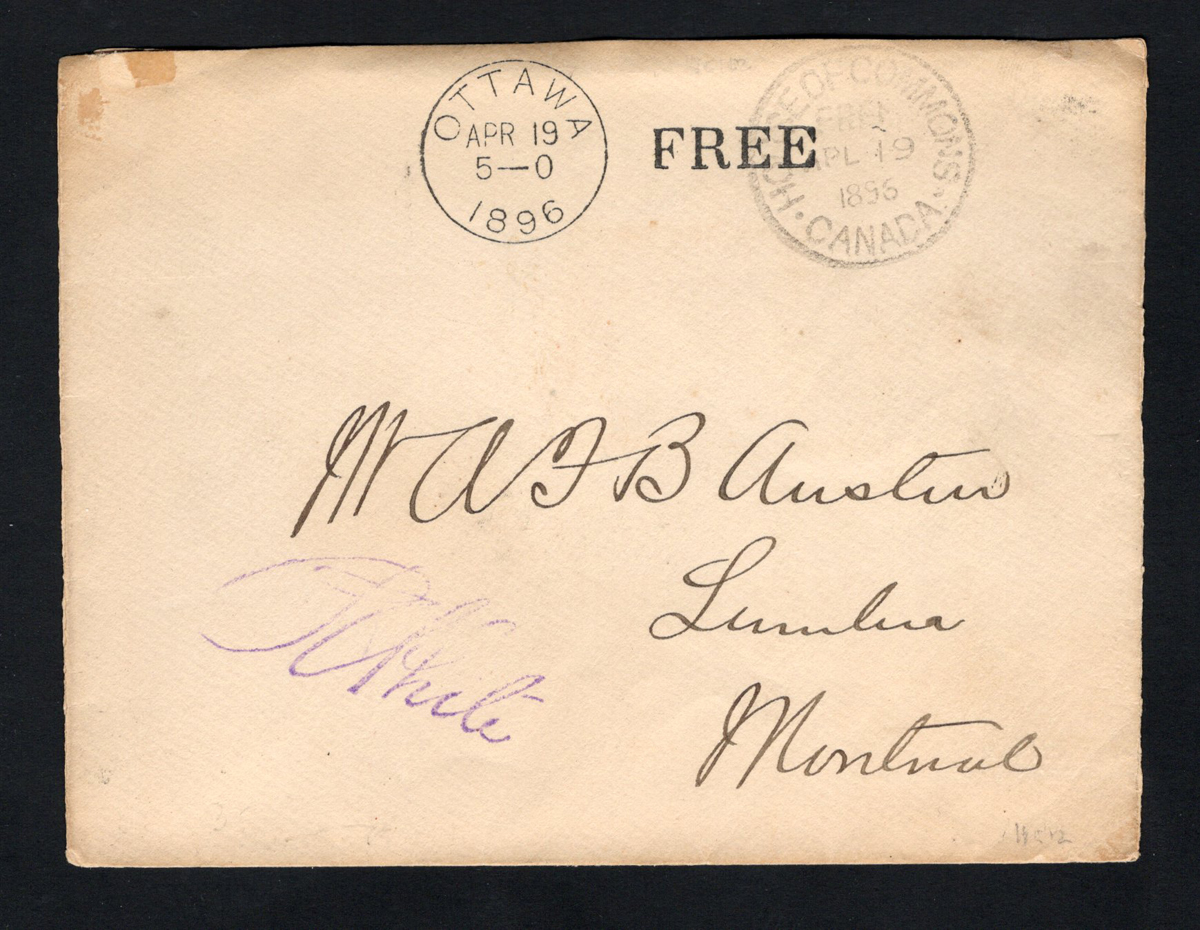 OTTAWA
APR 19
5—0
1896
FREE
HOUSE OF COMMONS
FREE
APL 19
1896
CANADA
Mr A F B Austin
Lumber
Montreal
White